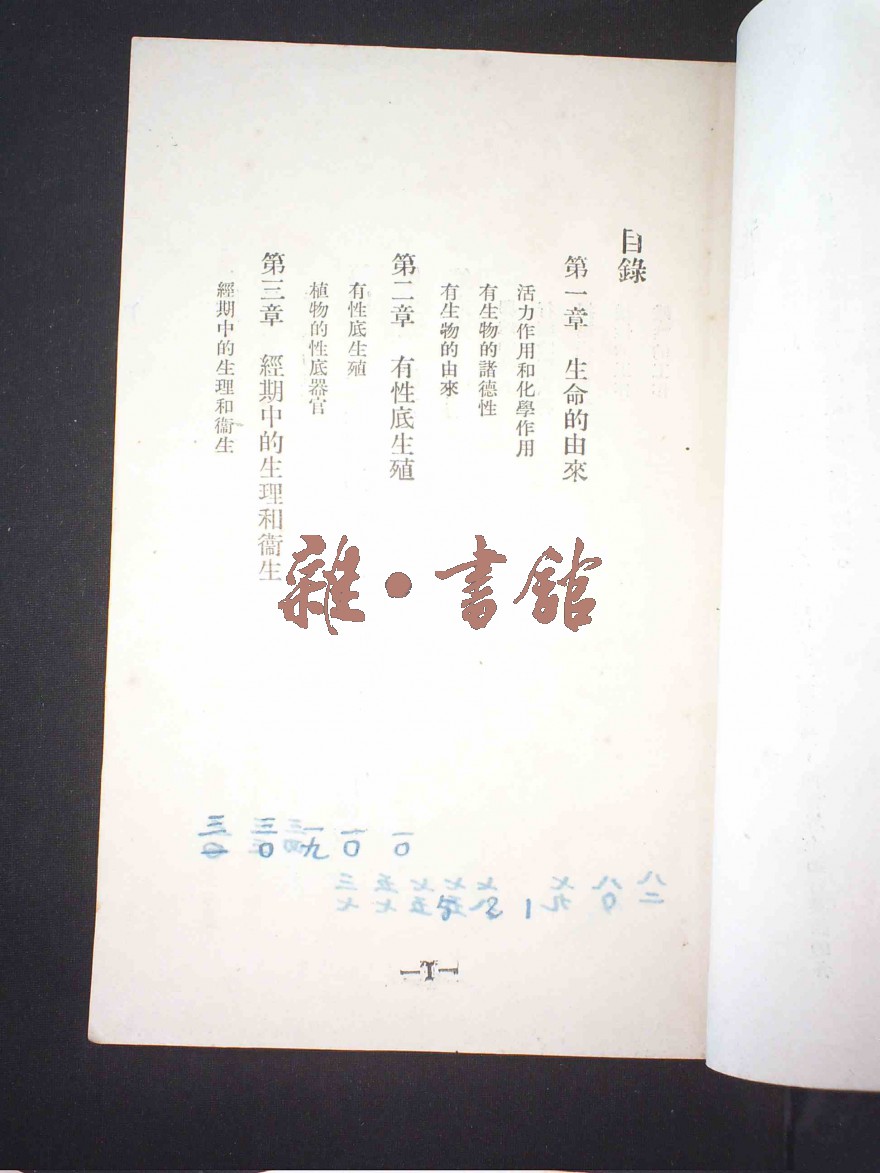 目錄
第一章　生命的由來
活力作用和化學作用
有生物的諸德性
有生物的由來
第二章　有性底生殖
有性底生殖
植物的性底器官
第三章　經期中的生理和衞生
經期中的生理和衞生
雜•書館
一〇
一〇
一九
三〇
1
2
5
—1—